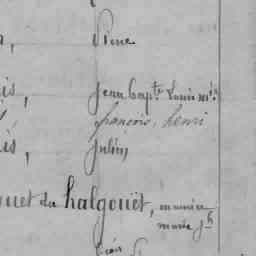 Pierre
is, Jean Bapte Louis m.
françois, henri
is, Julien
uet du halgouët,
marie jh